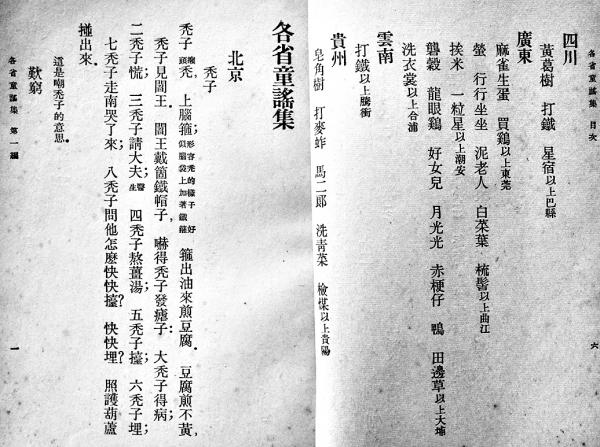 各省童謠集 目次
六
四川
黃葛樹 打鐵 星宿以上巴縣
廣東
麻雀生蛋 買鷄以上東莞
螢 行行坐坐 泥老人 白菜葉 梳髻以上曲江
挨米 一粒星以上潮安
礱穀 龍眼鷄 好女兒 月光光 赤梗仔 鴨 田邊草以上大埔
洗衣裳以上合浦
雲南
打鐵以上騰衝
貴州
皂角樹 打麥蚱 馬二郎 洗靑菜 檢煤以上貴陽
各省童謠集
北京
禿子
禿子 上腦箍;形容禿的樣子好似腦袋上加著鐵箍 箍出油來煎豆腐. 豆腐煎不黃,
禿子見閻王. 閻王戴箇鐵帽子, 嚇得禿子發瘧子: 大禿子得病;
二禿子慌; 三禿子請大夫;醫生 四禿子熬薑湯; 五禿子擡; 六禿子埋;
七禿子走南哭了來; 八禿子問他怎麼快快擡? 快快埋? 照護葫蘆
撞出來.
這是嘲禿子的意思.
歎窮
各省童謠集 第一編
一